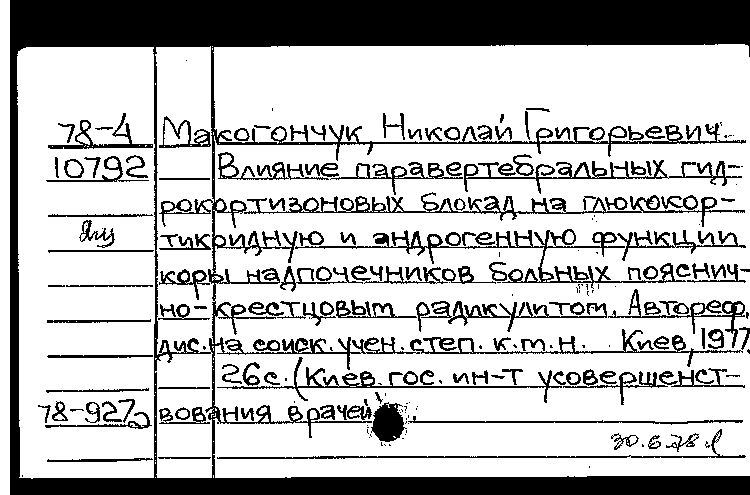 78-4 Макогончук, Николай Григорьевич.
10792 Влияние паравертебральных гид-
рокортизоновых блокад на глюкокор-
тикоидную и андрогенную функции
коры надпочечников больных пояснич-
но-крестцовым радикулитом. Автореф.
дис. на соиск. учен. степ. к.м.н. Киев, 1977
26с. (Киев. гос. ин-т усовершенст-
78-927 вования врачей).
30.6.78